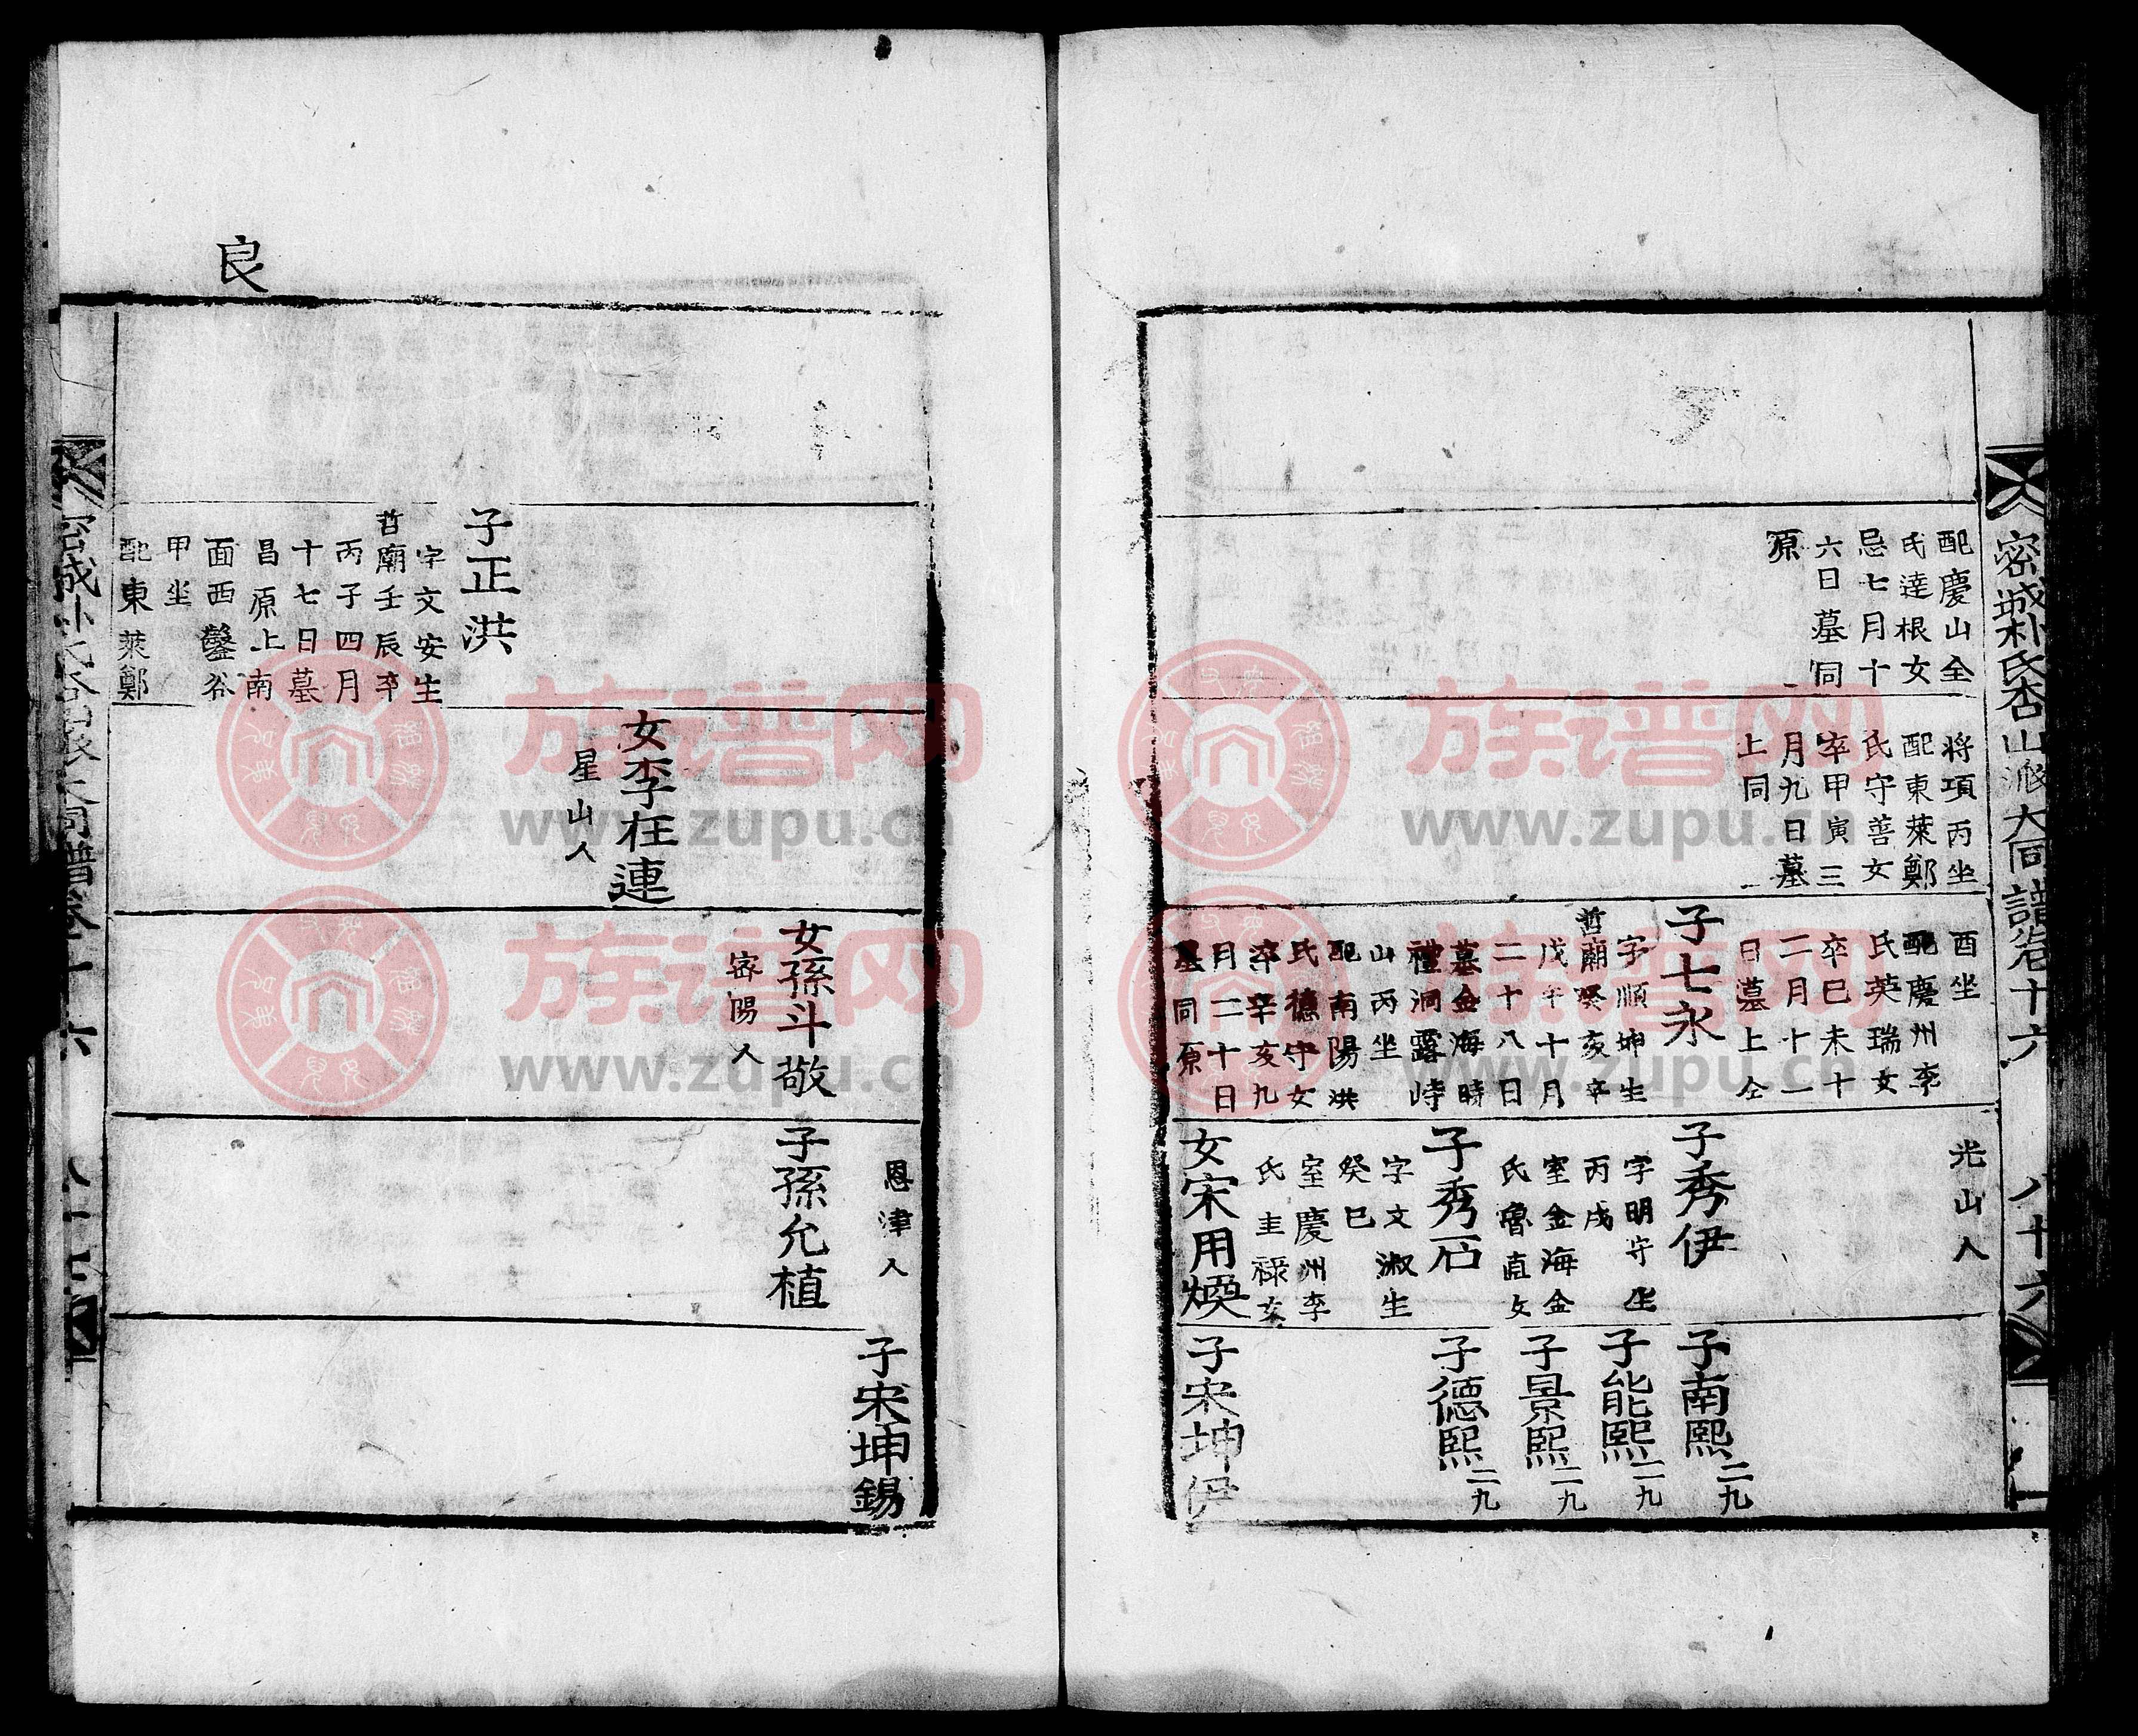 密城朴氏杏山派大同譜卷十六
八十六
配慶山全
氏達根女
忌七月十
六日墓同
原
將項丙坐
配東萊鄭
氏守善女
卒甲寅三
月九日墓
上同
酉坐
配慶州李
氏英瑞女
卒巳未十
二月十一
日墓上仝
子七永
字順坤生
哲廟癸亥卒
戊午十月
二十八日
墓金海時
禮洞露峙
山丙坐
配南陽洪
氏德守女
卒辛亥九
月二十日
墓同原
光山人
子秀伊
字明守生
丙戌
室金海金
氏魯直女
子秀石
字文淑生
癸巳
室慶州李
氏圭祿女
女宋用煥
子南熙 二九
子能熙 二九
子景熙 二九
子德熙 二九
子宋坤伊
良
子正洪
字文安生
哲廟壬辰卒
丙子四月
十七日墓
昌原上南
面西鑿谷
甲坐
配東萊鄭
女李枉連
星山人
女孫斗敬
密陽人
恩津人
子孫允植
子宋坤錫
族谱网
www.zupu.cn
族谱网
www.zupu.cn
族谱网
www.zupu.cn
族谱网
www.zupu.cn